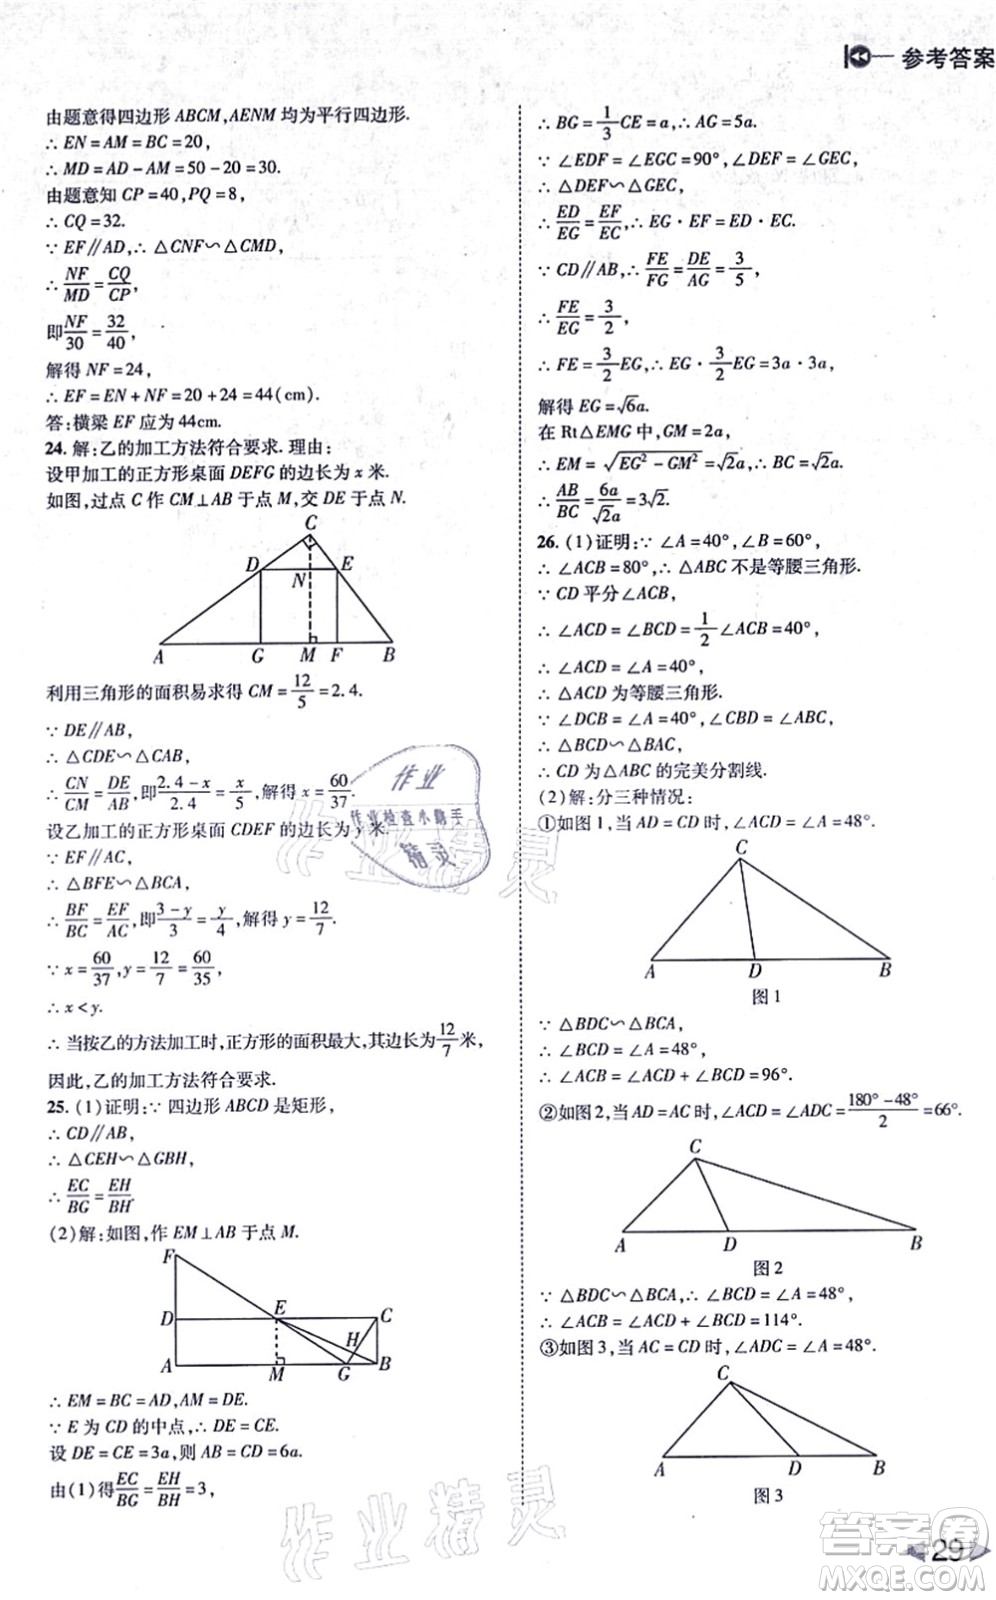 参考答案
由题意得四边形 ABCM,AENM 均为平行四边形.
∴ EN = AM = BC = 20,
∴ MD = AD - AM = 50 - 20 = 30.
由题意知 CP = 40, PQ = 8,
∴ CQ = 32.
∵ EF // AD, ∴ △CNF∽△CMD,
∴ NF/MD = CQ/CP,
即 NF/30 = 32/40,
解得 NF = 24,
∴ EF = EN + NF = 20 + 24 = 44(cm).
答:横梁 EF 应为 44cm.
24. 解:乙的加工方法符合要求. 理由:
设甲加工的正方形桌面 DEFG 的边长为 x 米.
如图,过点 C 作 CM⊥AB 于点 M,交 DE 于点 N.
C
D N E
A G M F B
利用三角形的面积易求得 CM = 12/5 = 2.4.
∵ DE // AB,
∴ △CDE∽△CAB,
∴ CN/CM = DE/AB, 即 (2.4 - x)/2.4 = x/5, 解得 x = 60/37.
设乙加工的正方形桌面 CDEF 的边长为 y 米.
∵ EF // AC,
∴ △BFE∽△BCA,
∴ BF/BC = EF/AC, 即 (3 - y)/3 = y/4, 解得 y = 12/7.
∵ x = 60/37, y = 12/7 = 60/35,
∴ x < y.
∴ 当按乙的方法加工时,正方形的面积最大,其边长为 12/7 米,
因此,乙的加工方法符合要求.
25. (1)证明:∵ 四边形 ABCD 是矩形,
∴ CD // AB,
∴ △CEH∽△GBH,
∴ EC/BG = EH/BH.
(2)解:如图,作 EM⊥AB 于点 M.
F
D E C
H
A M G B
∴ EM = BC = AD, AM = DE.
∵ E 为 CD 的中点, ∴ DE = CE.
设 DE = CE = 3a, 则 AB = CD = 6a.
由(1)得 EC/BG = EH/BH = 3,
∴ BG = 1/3 CE = a, ∴ AG = 5a.
∵ ∠EDF = ∠EGC = 90°, ∠DEF = ∠GEC,
∴ △DEF∽△GEC,
∴ ED/EG = EF/EC, ∴ EG · EF = ED · EC.
∵ CD // AB, ∴ FE/FG = DE/AG = 3/5,
∴ FE/EG = 3/2,
∴ FE = 3/2 EG, ∴ EG · 3/2 EG = 3a · 3a,
解得 EG = √6a.
在 Rt△EMG 中, GM = 2a,
∴ EM = √(EG² - GM²) = √2a, ∴ BC = √2a.
∴ AB/BC = 6a/√2a = 3√2.
26. (1)证明:∵ ∠A = 40°, ∠B = 60°,
∴ ∠ACB = 80°, ∴ △ABC 不是等腰三角形.
∵ CD 平分∠ACB,
∴ ∠ACD = ∠BCD = 1/2 ∠ACB = 40°,
∴ ∠ACD = ∠A = 40°,
∴ △ACD 为等腰三角形.
∵ ∠DCB = ∠A = 40°, ∠CBD = ∠ABC,
∴ △BCD∽△BAC,
∴ CD 为△ABC 的完美分割线.
(2)解:分三种情况:
①如图 1,当 AD = CD 时,∠ACD = ∠A = 48°.
C
A D B
图 1
∵ △BDC∽△BCA,
∴ ∠BCD = ∠A = 48°,
∴ ∠ACB = ∠ACD + ∠BCD = 96°.
②如图 2,当 AD = AC 时,∠ACD = ∠ADC = (180° - 48°)/2 = 66°.
C
A D B
图 2
∵ △BDC∽△BCA, ∴ ∠BCD = ∠A = 48°,
∴ ∠ACB = ∠ACD + ∠BCD = 114°.
③如图 3,当 AC = CD 时,∠ADC = ∠A = 48°.
C
A D B
图 3
作业
作业检查小助手
精灵
作业精灵
作业精灵
答案圈
MXQE.COM
29